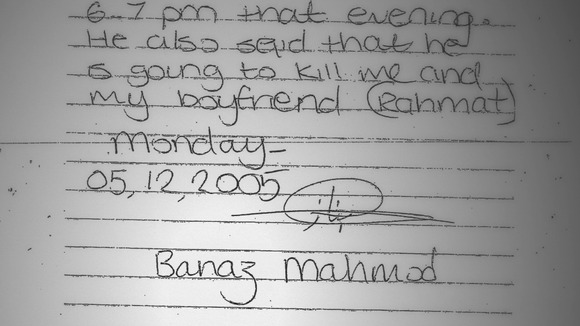 6-7 pm that evening.
He also said that he
is going to kill me and
my boyfriend (Rahmat)
Monday-
05,12,2005
Banaz Mahmod